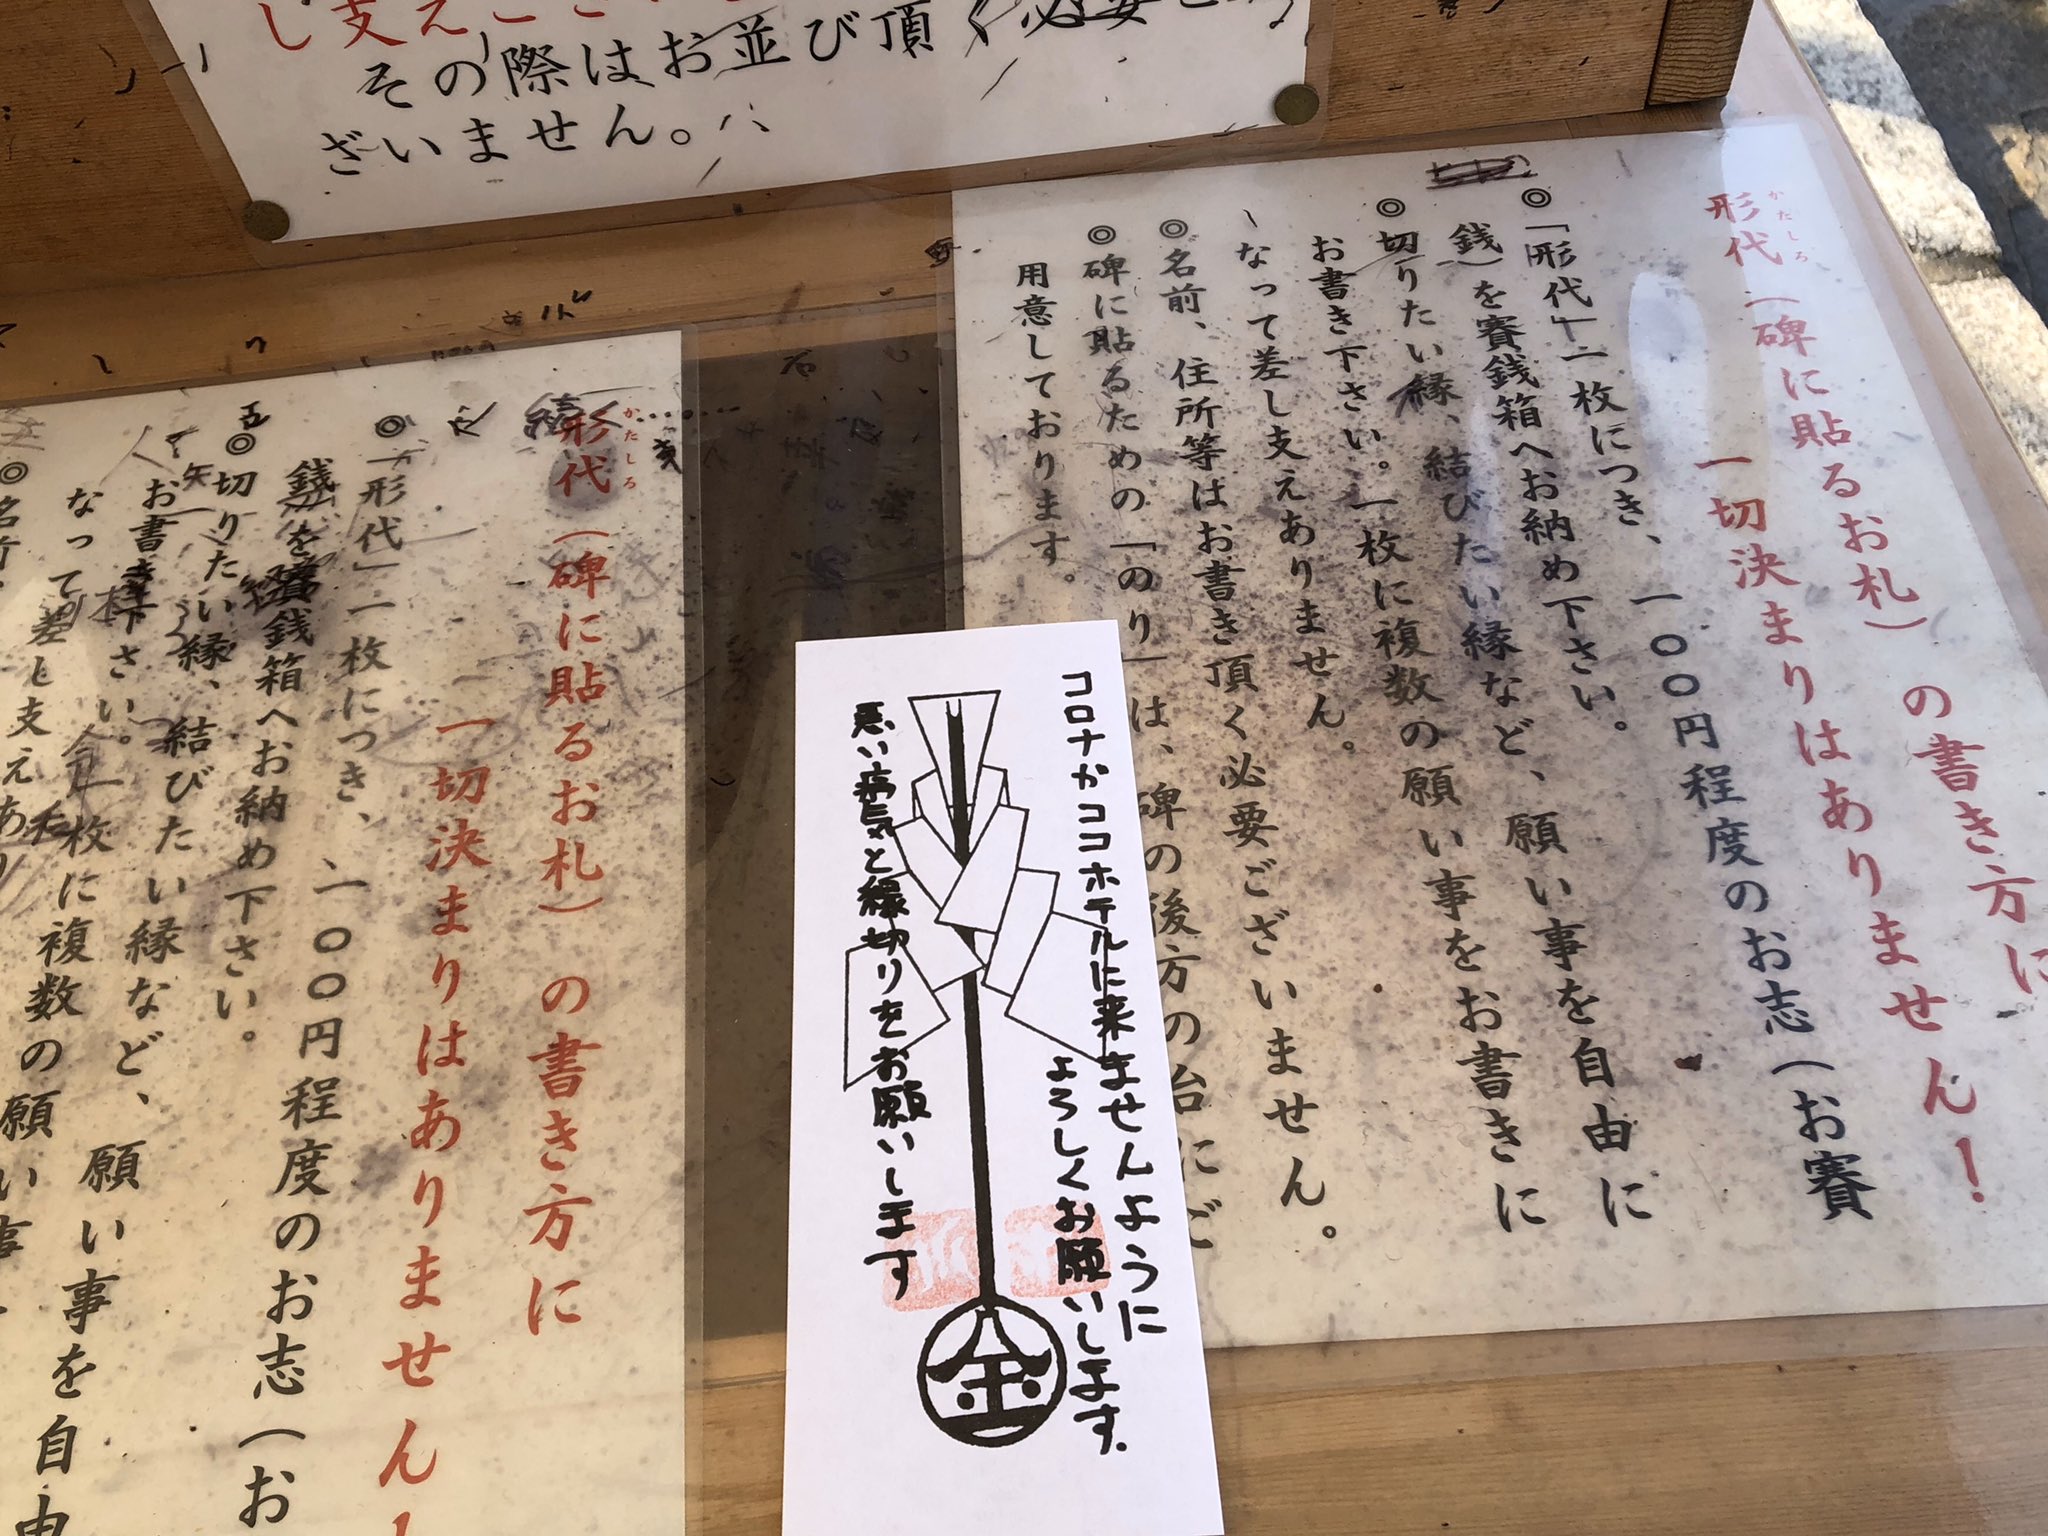 し支えござい
その際はお並び頂く必要
ざいません。
形代（碑に貼るお札）の書き方に
かたしろ
一切決まりはありません！
◎「形代」一枚につき、一〇〇円程度のお志（お賽
銭）を賽銭箱へお納め下さい。
◎切りたい縁、結びたい縁など、願い事を自由に
お書き下さい。一枚に複数の願い事をお書きに
なって差し支えありません。
◎名前、住所等はお書き頂く必要ございません。
◎碑に貼るための「のり」は、碑の後方の台にご
用意しております。
コロナがココホテルに来ませんように
よろしくお願いします。
悪い病気と縁切りをお願いします
金
形代（碑に貼るお札）の書き方に
かたしろ
一切決まりはありません！
◎「形代」一枚につき、一〇〇円程度のお志（お
銭）を賽銭箱へお納め下さい。
◎切りたい縁、結びたい縁など、願い事を自由
お書き下さい。一枚に複数の願い事
なって差し支えあり
◎名前